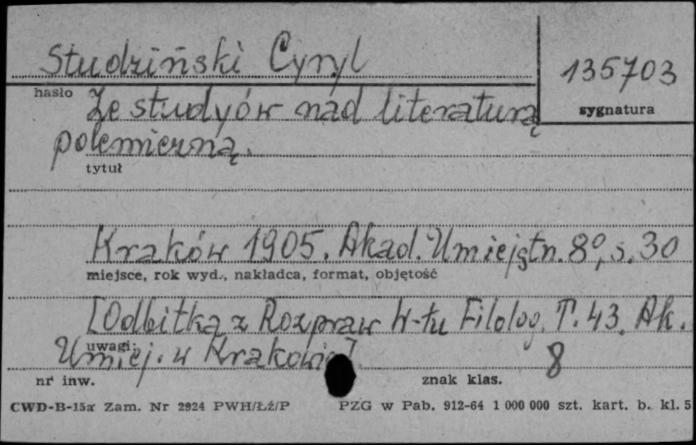 Studziński Cyryl
135703
hasło
sygnatura
Ze studyów nad literaturą
polemiczną.
tytuł
Kraków 1905. Akad. Umiejętn. 8º, s. 30
miejsce, rok wyd., nakładca, format, objętość
[Odbitka z Rozpraw W-łu Filolog. T. 43. Ak.
uwagi:
Umiej. w Krakowie]
8
nr inw.
znak klas.
CWD-B-15a Zam. Nr 2924 PWH/Łź/P PZG w Pab. 912-64 1 000 000 szt. kart. b. kl. 5